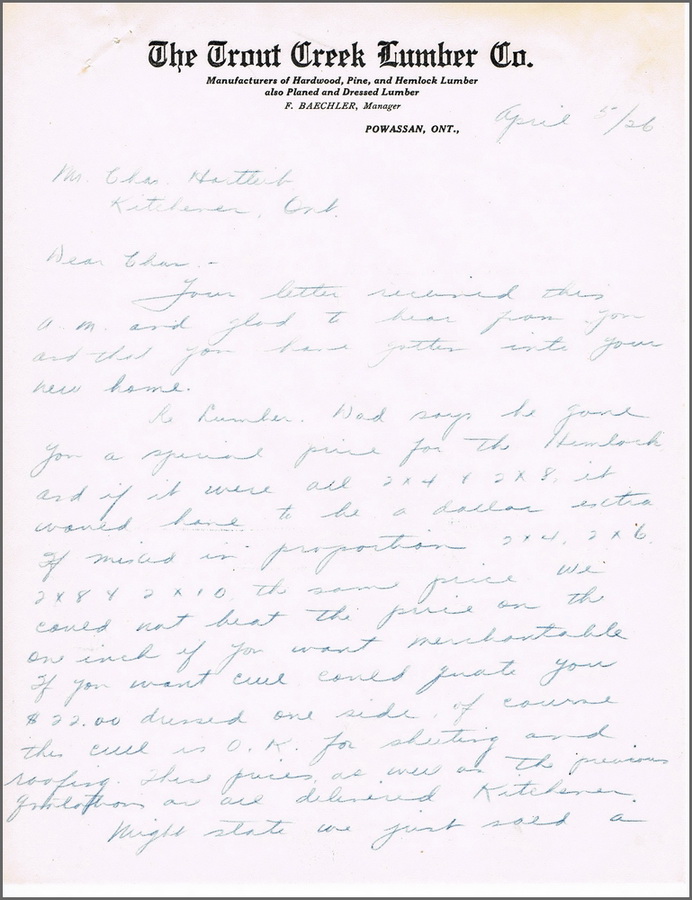 The Trout Creek Lumber Co.
Manufacturers of Hardwood, Pine, and Hemlock Lumber
also Planed and Dressed Lumber
F. BAECHLER, Manager
POWASSAN, ONT., April 5/26
Mr. Chas. Hartleib
Kitchener, Ont.
Dear Chas. -
Your letter received this
a. m. and glad to hear from you
and that you have gotten into your
new home.
Re Lumber. Dad says he gave
you a special price for the Hemlock
and if it were all 2x4 & 2x8, it
would have to be a dollar extra
If mixed in proportion 2x4, 2x6
2x8 & 2x10 the same price We
could not beat the price on the
one inch if you want merchantable
If you want cull could quote you
$22.00 dressed one side, of course
this cull is O.K. for sheeting and
roofing. These prices, as well as the previous
quotations are all delivered Kitchener.
Might state we just sold a